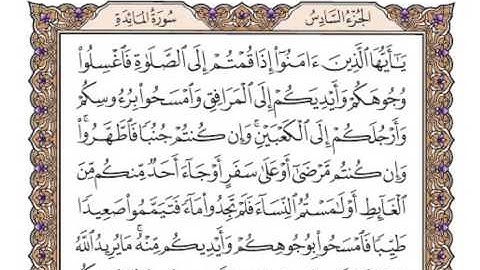 الجزء السادس
سورة المائدة
يَٰٓأَيُّهَا ٱلَّذِينَ ءَامَنُوٓا۟ إِذَا قُمْتُمْ إِلَى ٱلصَّلَوٰةِ فَٱغْسِلُوا۟
وُجُوهَكُمْ وَأَيْدِيَكُمْ إِلَى ٱلْمَرَافِقِ وَٱمْسَحُوا۟ بِرُءُوسِكُمْ
وَأَرْجُلَكُمْ إِلَى ٱلْكَعْبَيْنِ ۚ وَإِن كُنتُمْ جُنُبًا فَٱطَّهَّرُوا۟ ۚ
وَإِن كُنتُم مَّرْضَىٰٓ أَوْ عَلَىٰ سَفَرٍ أَوْ جَآءَ أَحَدٌ مِّنكُم مِّنَ
ٱلْغَآئِطِ أَوْ لَٰمَسْتُمُ ٱلنِّسَآءَ فَلَمْ تَجِدُوا۟ مَآءً فَتَيَمَّمُوا۟ صَعِيدًا
طَيِّبًا فَٱمْسَحُوا۟ بِوُجُوهِكُمْ وَأَيْدِيكُم مِّنْهُ ۚ مَا يُرِيدُ ٱللَّهُ